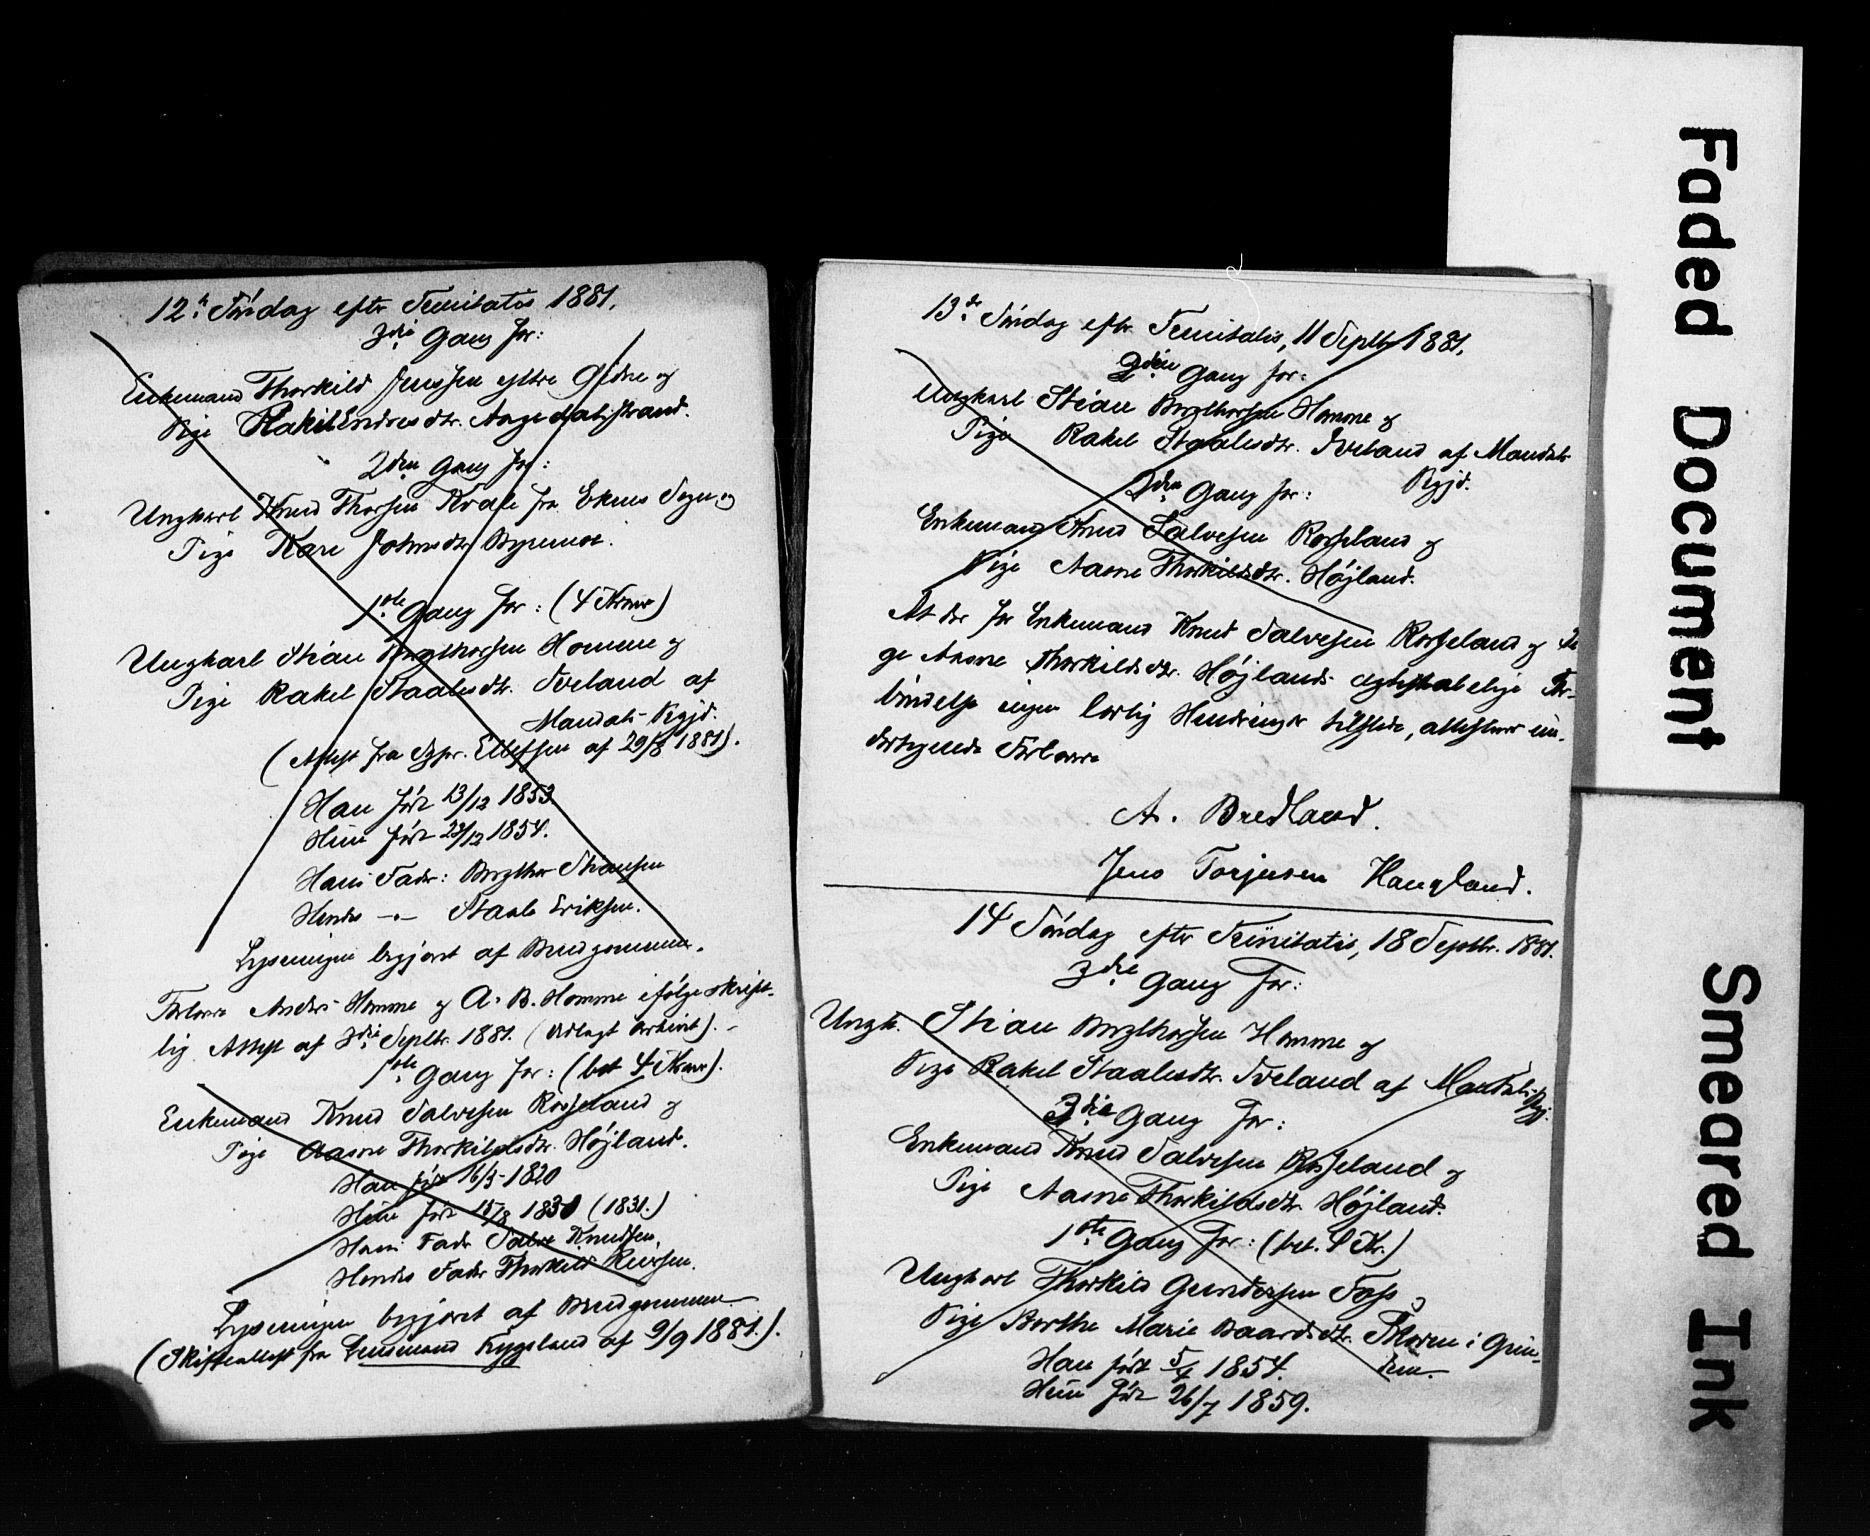 12te Søndag efter Trinitatis 1881.
3die Gang for:
Enkemand Thorkild Jenssen ystre Ødne og
Pige Rakel Endresdtr. Aagedalsstrand.
2den Gang for:
Ungkarl Knud Thorsen Kvale fra Ekens Sogn og
Pige Kari Johnsdtr. Byremoe.
1ste Gang for: (4 Kroner)
Ungkarl Stian Bergthorsen Homme og
Pige Rakel Staalesdtr. Sveland af
Mandals Pgjd.
(Attest fra Sgpr. Ellefsen af 29/8 1881).
Han født 13/12 1853
Hun født 23/12 1854.
Hans Fader: Bergthor Stiansen
Hendes -"- Staale Eriksen.
Lysningen begjæret af Brudgommen.
Forlovere Anders Homme og A. B. Homme ifølge skrift-
lig Attest af 3die Septbr. 1881. (Udlagt Arkivet). -
1ste Gang for: (bet 4 Kroner).
Enkemand Knud Salvesen Rosseland og
Pige Aasne Thorkildsdtr. Højland.
Han født 16/3 1820
Hun født 15/8 1830 (1831.)
Hans Fader Salve Knudsen,
Hendes Fader Thorkild Reiersen.
Lysningen begjæret af Brudgommen
(Skifteattest fra Lensmand Kygsland af 9/9 1881.).
13de Søndag efter Trinitatis, 11 Septbr 1881.
2den Gang for:
Ungkarl Stian Bergthorsen Homme og
Pige Rakel Staalesdtr. Sveland af Mandals
Pgjd.
2den Gang for:
Enkemand Knud Salvesen Rosseland og
Pige Aasne Thorkildsdtr. Højland.
At der for Enkemand Knud Salvesen Rosseland og Pi-
ge Aasne Thorkildsdtr. Højlands ægteskabelige For-
bindelse ingen lovlig Hindringer tilstede, attesterer un-
dertegnede Forlovere
A. Bredland.
Jens Torjusen Haugland.
14 Søndag efter Trinitatis, 18 Septbr. 1881.
3die Gang for:
Ungk. Stian Bergthorsen Homme og
Pige Rakel Staalesdtr. Sveland af Mandals Pgj.
3die Gang for:
Enkemand Knud Salvesen Rosseland og
Pige Aasne Thorkildsdtr. Højland.
1ste Gang for: (bet. 4 Kr.)
Ungkarl Thorkild Gundersen Foss og
Pige Berthe Marie Baardsdtr. i Grin-
dem.
Han født 5/4 1854.
Hun født 26/7 1859.
Faded Document
Smeared Ink